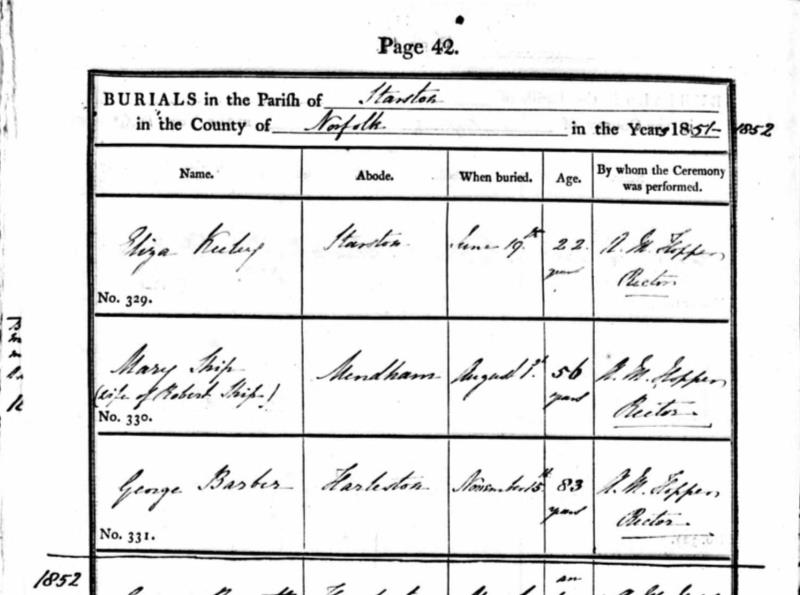 Page 42.
BURIALS in the Parish of Starston
in the County of Norfolk in the Years 1851- 1852
Name. Abode. When buried. Age. By whom the Ceremony was performed.
Eliza Starston June 19th 22 years A. M. Hopper Rector
No. 329.
Mary Ship Mendham August 1st 56 years A. M. Hopper Rector
(wife of Robert Ship)
No. 330.
George Barber Harleston November 15th 83 years A. M. Hopper Rector
No. 331.
1852